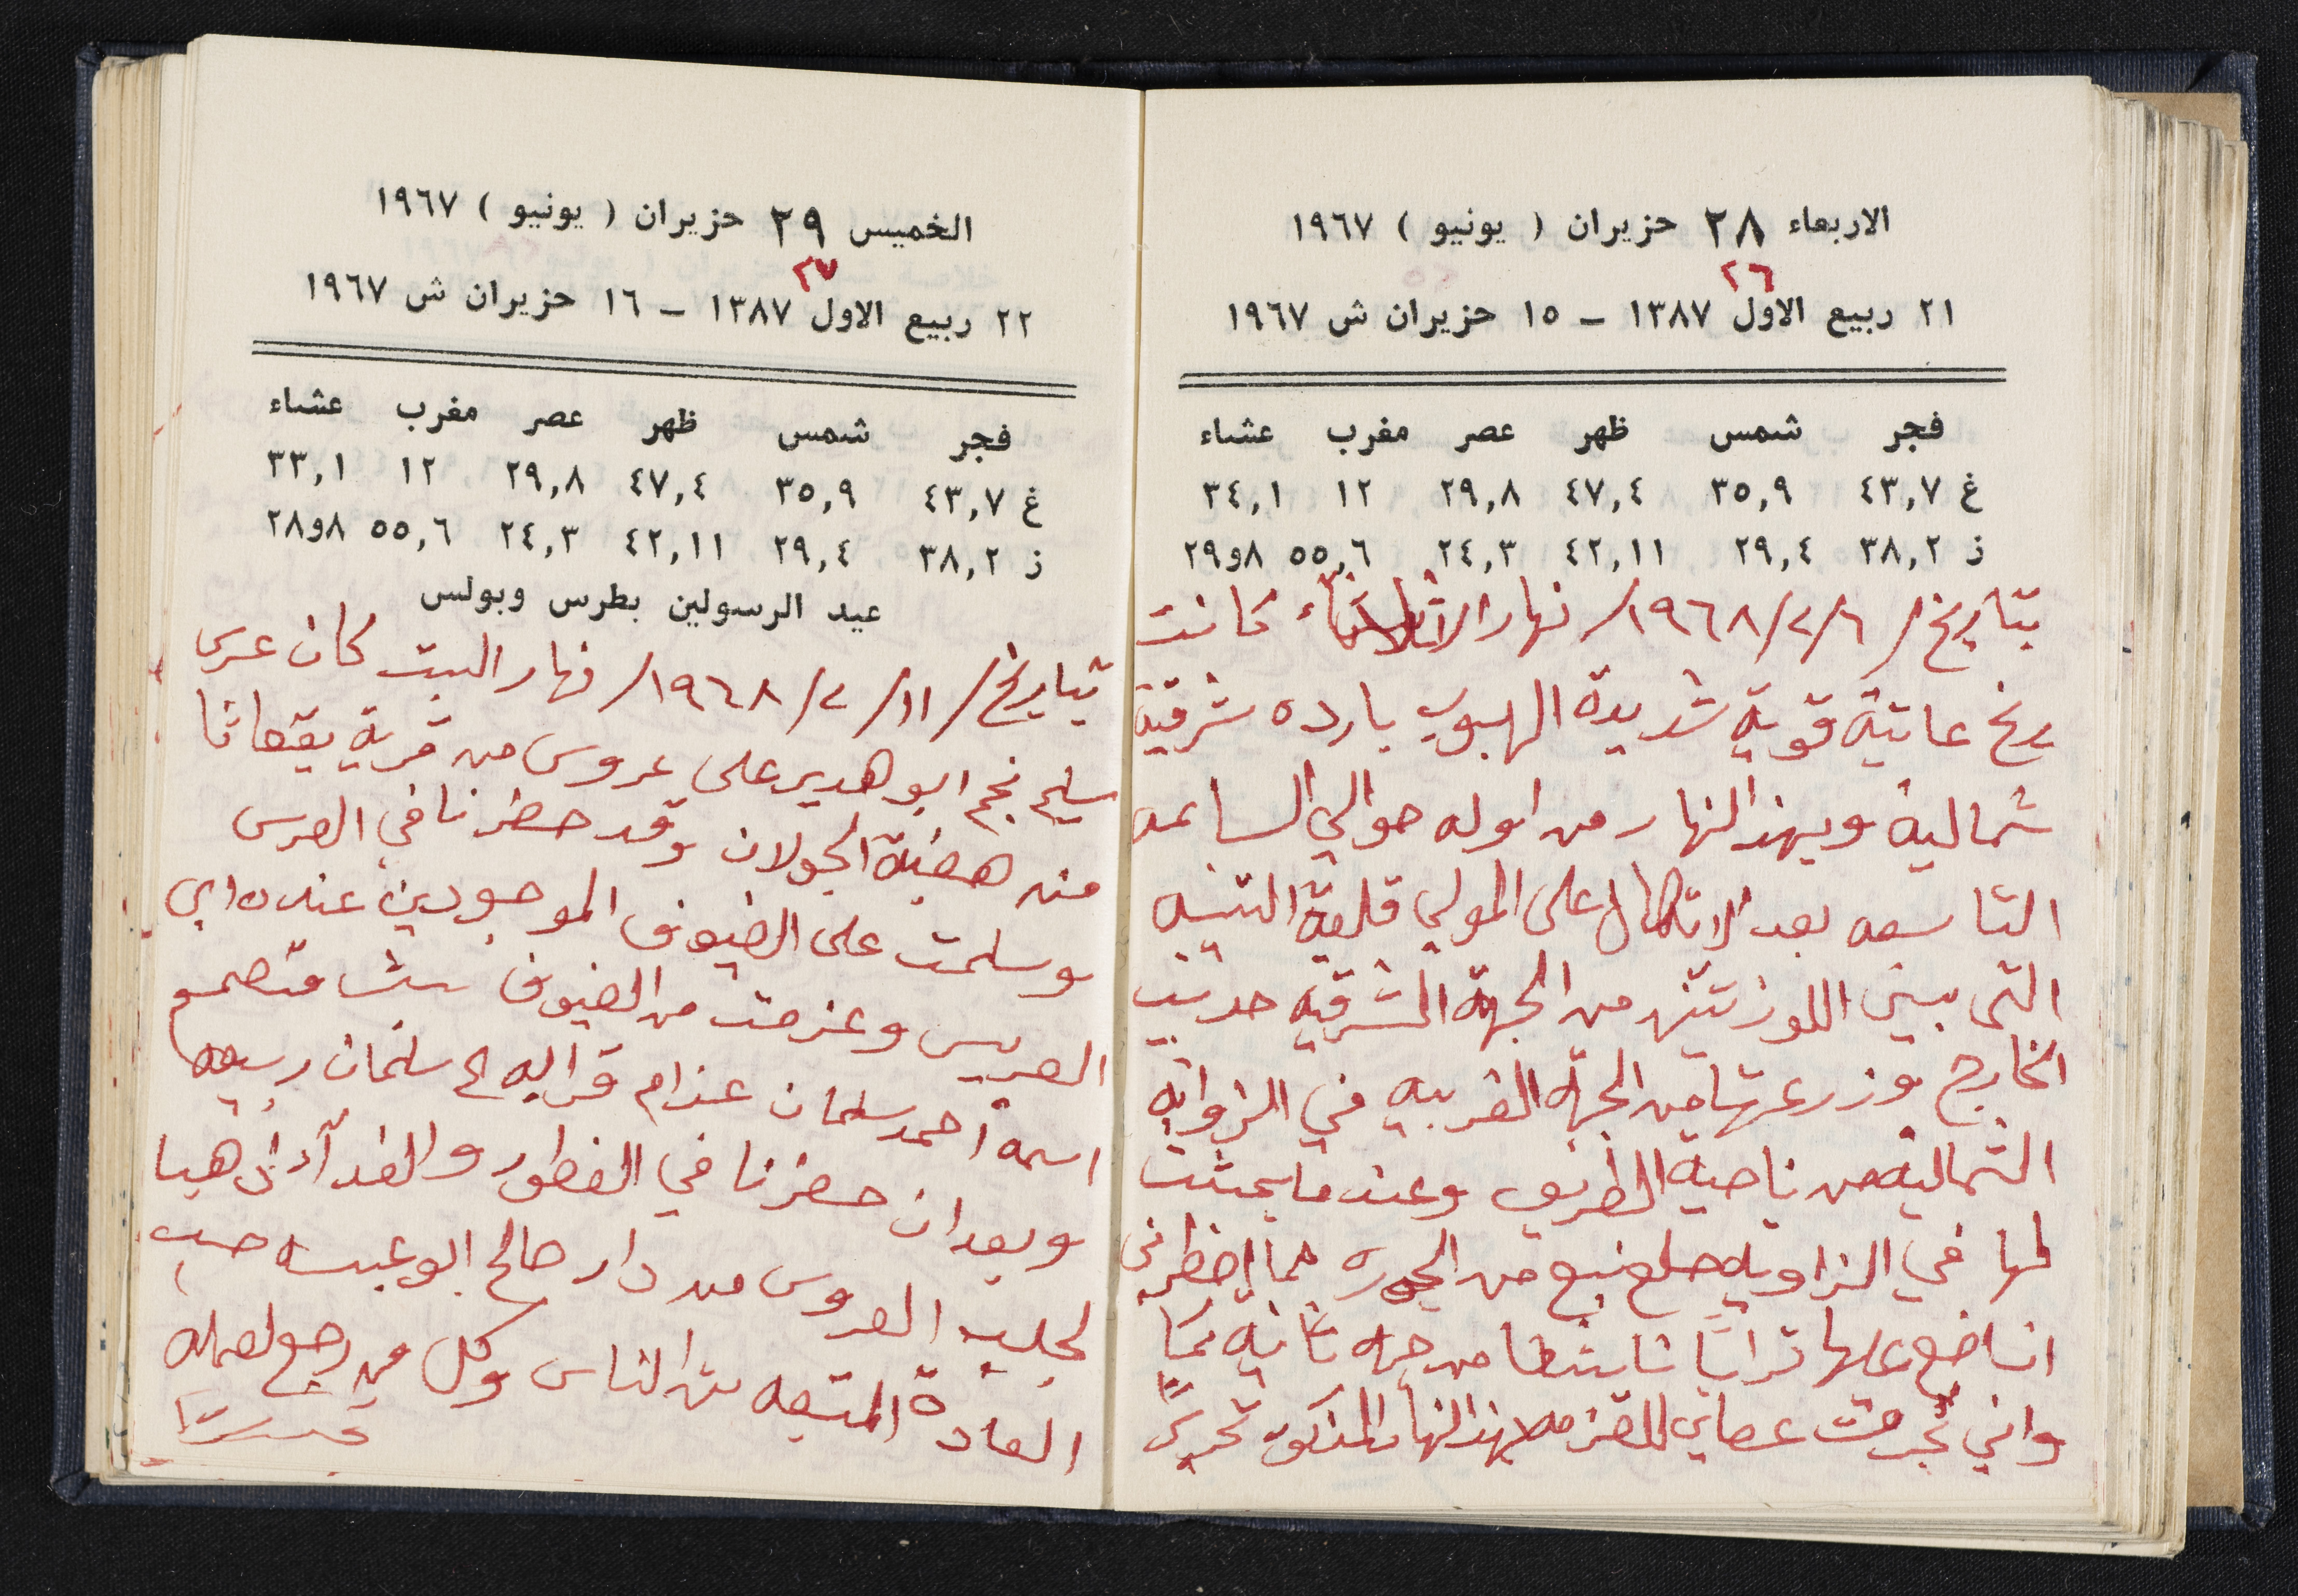 الاربعاء ٢٨ حزيران ( يونيو ) ١٩٦٧
٢٦
٢١ ربيع الاول ١٣٨٧ – ١٥ حزيران ش ١٩٦٧
فجر شمس ظهر عصر مغرب عشاء
غ ٤٣,٧ ٣٥,٩ ٤٧,٤ ٢٩,٨ ١٢ ٣٤,١
ز ٣٨,٢ ٢٩,٤ ٤٢,١١ ٢٤,٣ ٥٥,٦ ٨و٢٩
بتاريخ / ٦/٢/١٩٦٨/ نهار الاثلاثاء كانت
ريح عاتية قوية شديدة الهبوب بارده شرقية
شماليه وبهذالنهار من اوله حوالي الساعه
التاسعه بعد الاتكال على المولي قلعة التينه
التى بين اللوزتين من الجهة الشرقيه
الخارج وزرعتها من الجهة الغربيه في الزوايه
الشماليه من ناحية الطريق وعندما بحثت
لها في الزاويه نبع من الجوره مما اضطرني
ان اضع عليها تراباً من جهه ثانيه
واني عصاي بهذالنهار المذكور تحريرً
الخميس ٢٩ حزيران ( يونيو ) ١٩٦٧
٢٧
٢٢ ربيع الاول ١٣٨٧ – ١٦ حزيران ش ١٩٦٧
فجر شمس ظهر عصر مغرب عشاء
غ ٤٣,٧ ٣٥,٩ ٤٧,٤ ٢٩,٨ ١٢ ٣٣,١
ز ٣٨,٢ ٢٩,٤ ٤٢,١١ ٢٤,٣ ٥٥,٦ ٨و٢٨
عيد الرسولين بطرس وبولس
بتاريخ / ١١/٢/١٩٦٨/ نهار السبت كان عرس
سليم نجم ابو هدير على عروس من قرية بقعاثا
من هضبة الجولان وقد حضرنا في العرس
وسلمت على الضيوف الموجودين عنده ابي
العريس وعزمت من الضيوف
اسمه احمد سلمان عزام قرابه سلمان ربيعه
وبعد ان حضرنا في الفطور والغدآء
لجلب العروس من دار صالح ابو حسب
العادة المتبعه بين الناس وكل من رجع لعمله